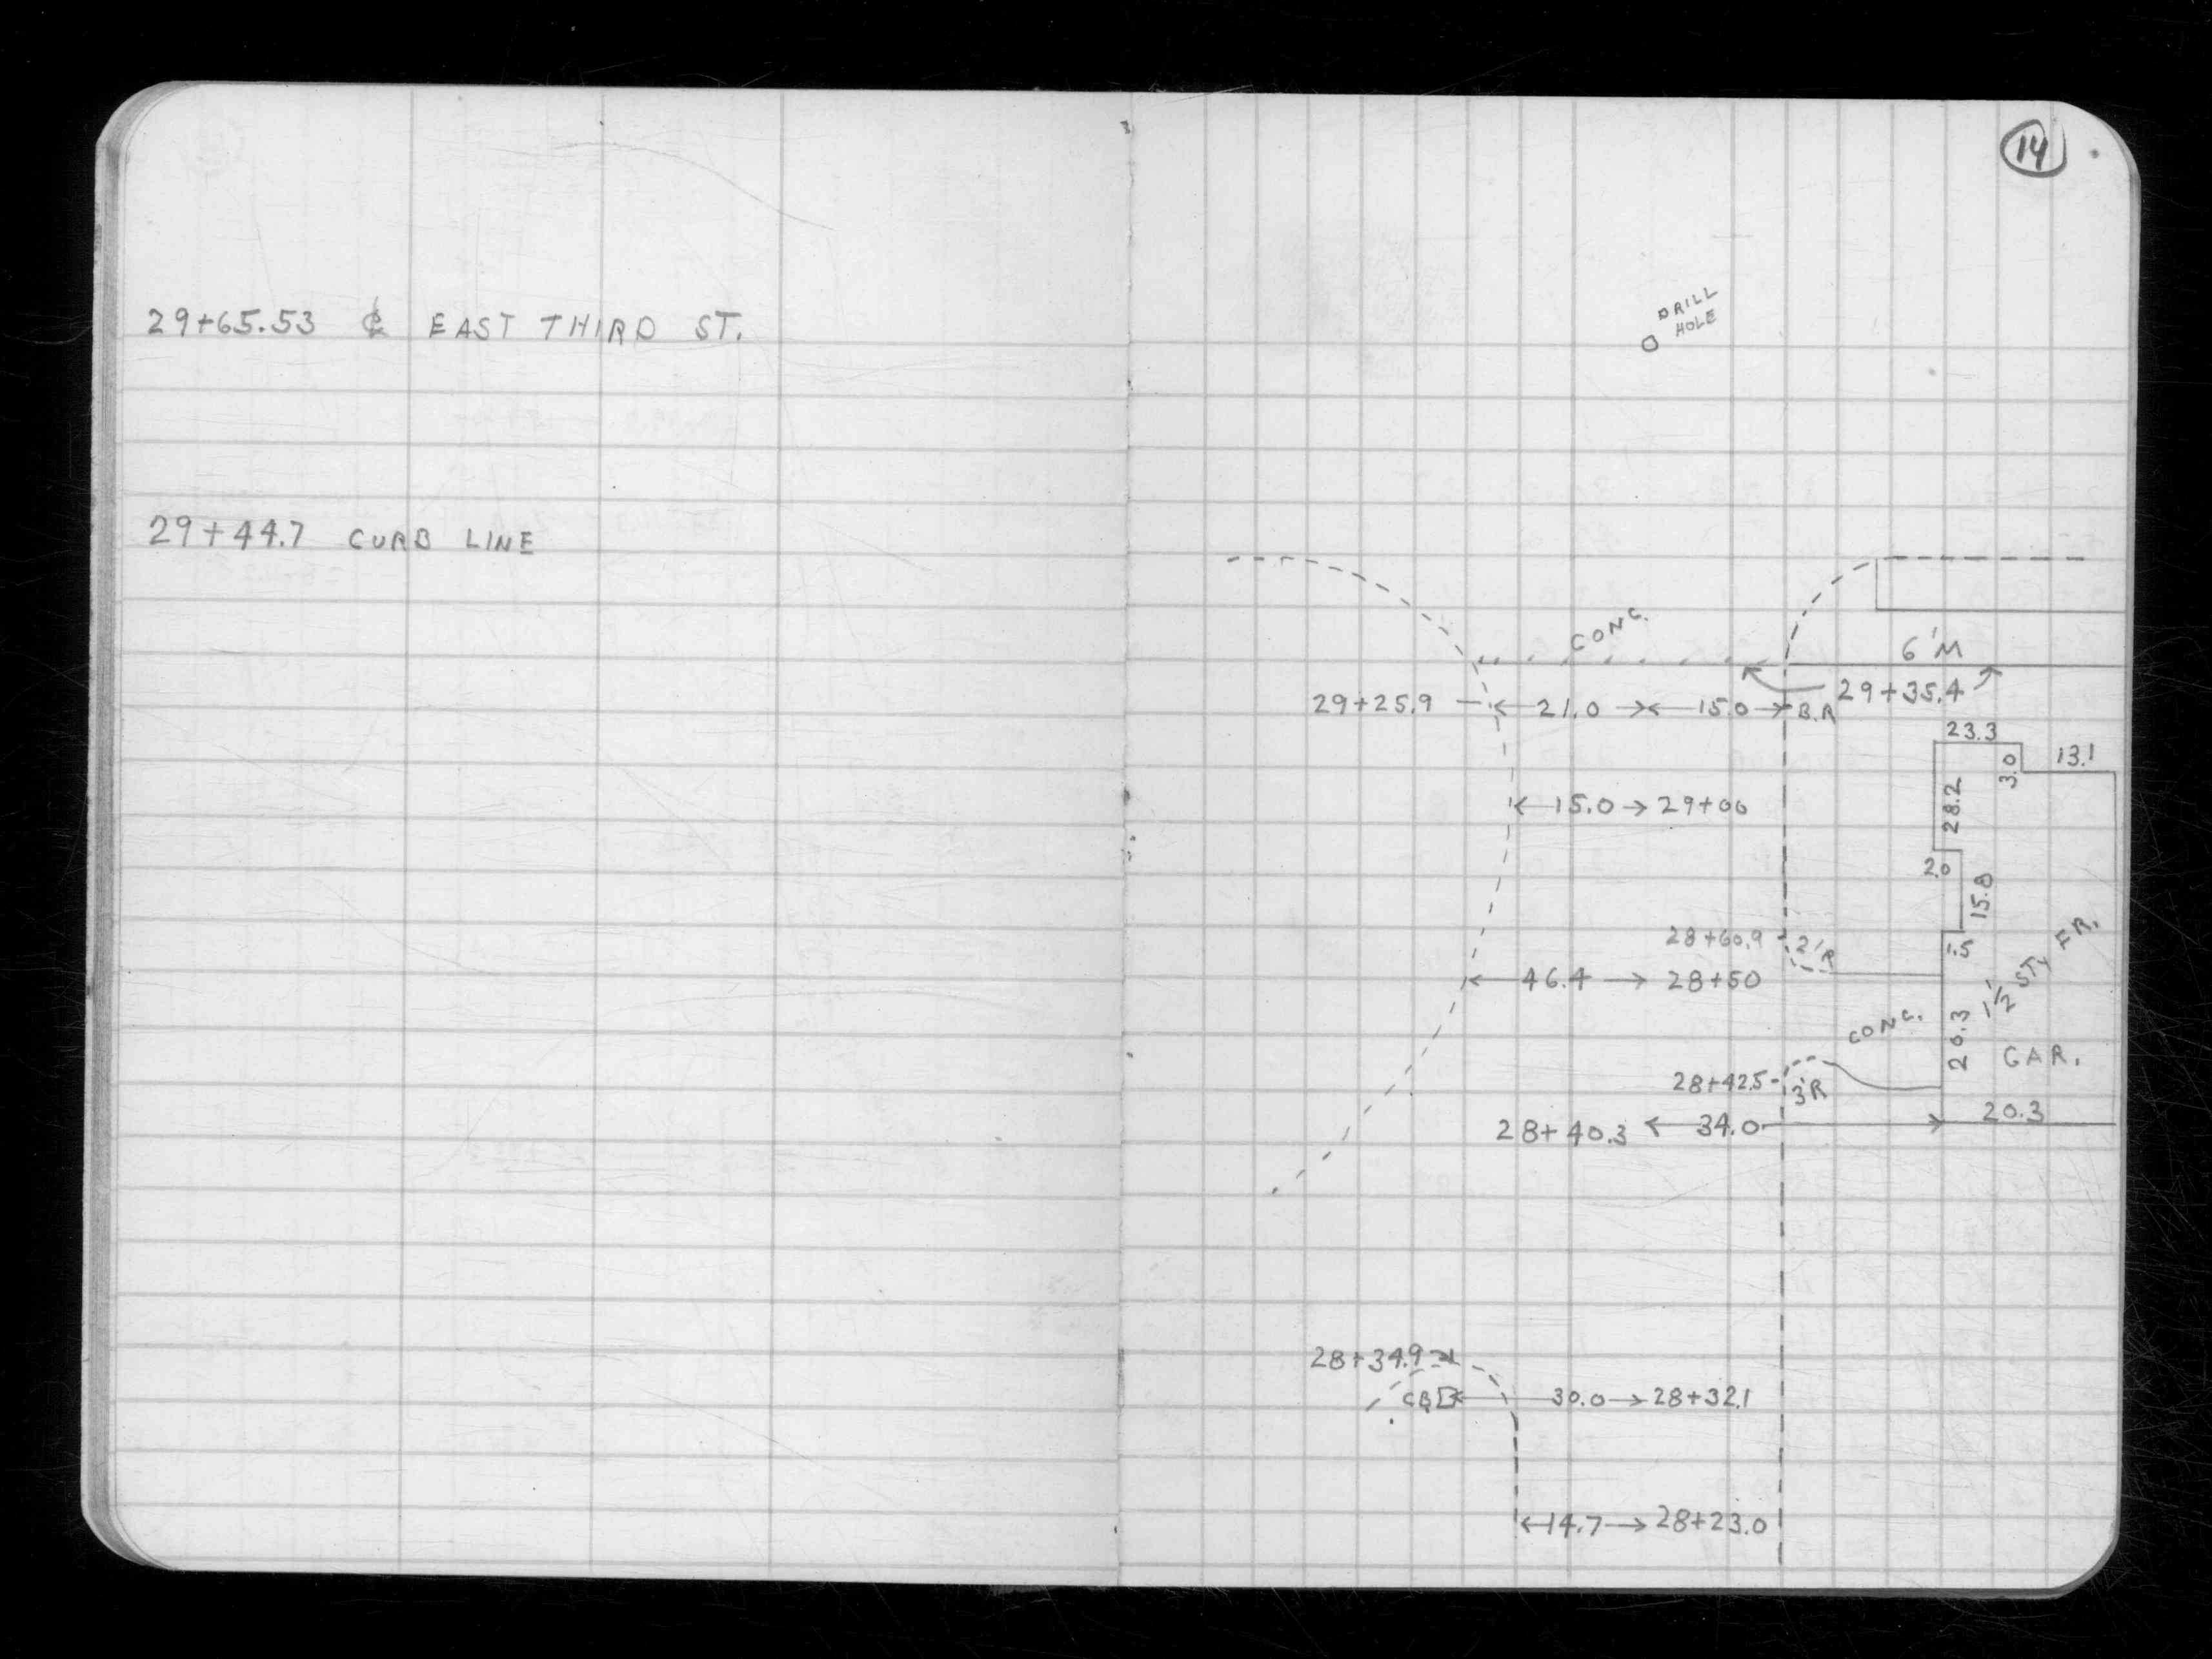 14
29+65.53 ℄ EAST THIRD ST.
DRILL
HOLE
29+44.7 CURB LINE
CONC.
6'M
29+35.4
29+25.9 21.0 15.0 B.R
23.3
3.0
13.1
28.2
15.0 29+00
2.0
15.8
28+60.9 2'R
1.5
1 1/2 STY FR.
46.4 28+50
CONC.
20.3
GAR.
28+42.5 3'R
28+40.3 34.0
20.3
28+34.9
CB 30.0 28+32.1
14.7 28+23.0